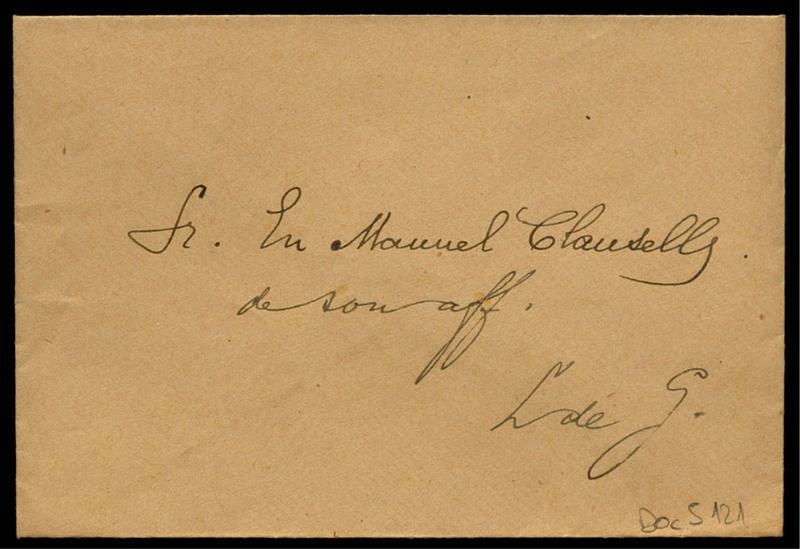 Sr. En Manuel Clausells.
de son aff.
L de G.
Doc S 121